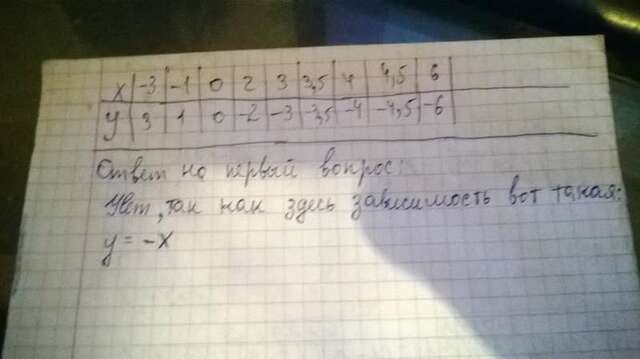 x | -3 | -1 | 0 | 2 | 3 | 3,5 | 4 | 4,5 | 6
y | 3 | 1 | 0 | -2 | -3 | -3,5 | -4 | -4,5 | -6
Ответ на первый вопрос:
Нет, так как здесь зависимость вот такая:
y = -x